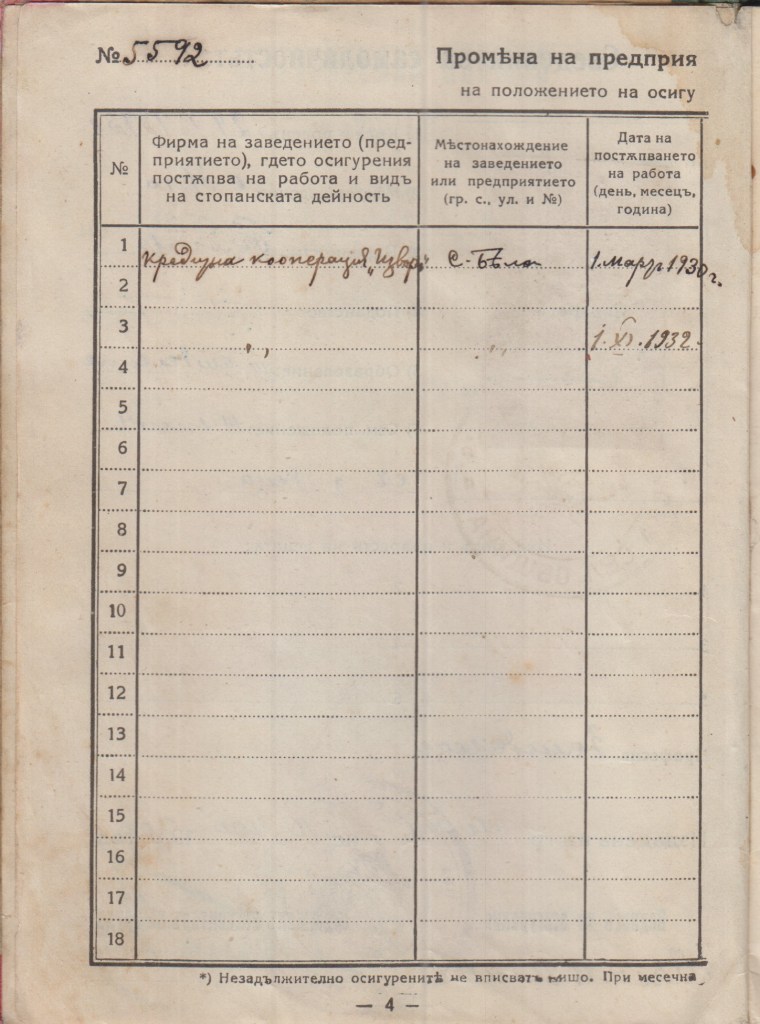 № 5592
Промѣна на предприя
на положението на осигу
№
Фирма на заведението (пред-
приятието), гдето осигурения
постѫпва на работа и видъ
на стопанската дейность
Мѣстонахождение
на заведението
или предприятието
(гр. с., ул. и №)
Дата на
постѫпването
на работа
(день, месецъ,
година)
1 кредитна кооперация „Изворъ“ с. Бѣла 1. мартъ 1930 г.
2
3 „ „ 1. XI. 1932.
4
5
6
7
8
9
10
11
12
13
14
15
16
17
18
*) Незадължително осигуренитѣ не вписватъ нищо. При месечна
— 4 —